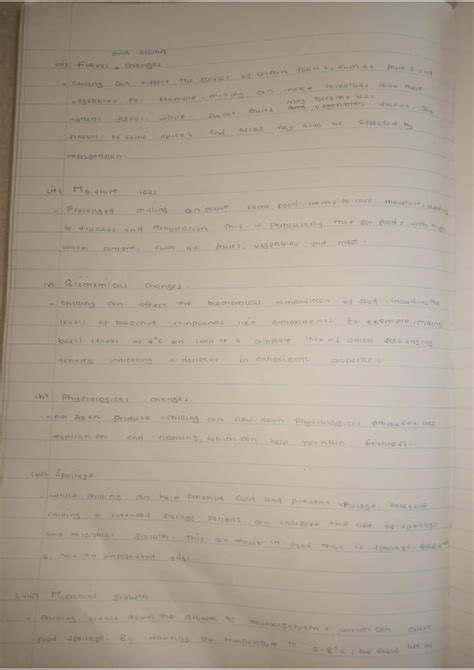 and aroma
iii) Flavor changes.
- Chilling can affect the flavor of certain foods, such as fruits and
vegetables. For example, chilling can make tomatoes lose their
natural flavor while sweet fruits may become less
flavors of some spices and herbs may also be affected by
refrigeration
iv) Moisture loss
- Prolonged chilling can cause some food items to lose moisture, leading
to dryness and dehydration. This is particularly true for foods with high
water content, such as fruits, vegetables and meat.
v) Biochemical changes.
- Chilling can affect the biochemical composition of food, including the
levels of bioactive compounds like antioxidants. For example, chilling
basil leaves at 4°C can lead to a complete loss of
activity, indicating a decrease in antioxidant
vi) Physiological changes
- For fresh produce, chilling can slow down physiological processes like
respiration and ripening, which can help maintain freshness.
vii) Spoilage
- While chilling can help preserve food and prevent spoilage, excessive
chilling or extended storage periods can increase the risk of spoilage
and microbial growth. This can result in food that is
or has an unpleasant odor
viii) Microbial Growth
- Chilling slows down the growth of microorganisms, which can cause
food spoilage. By reducing the temperature to 0-8°C, the shelf life of